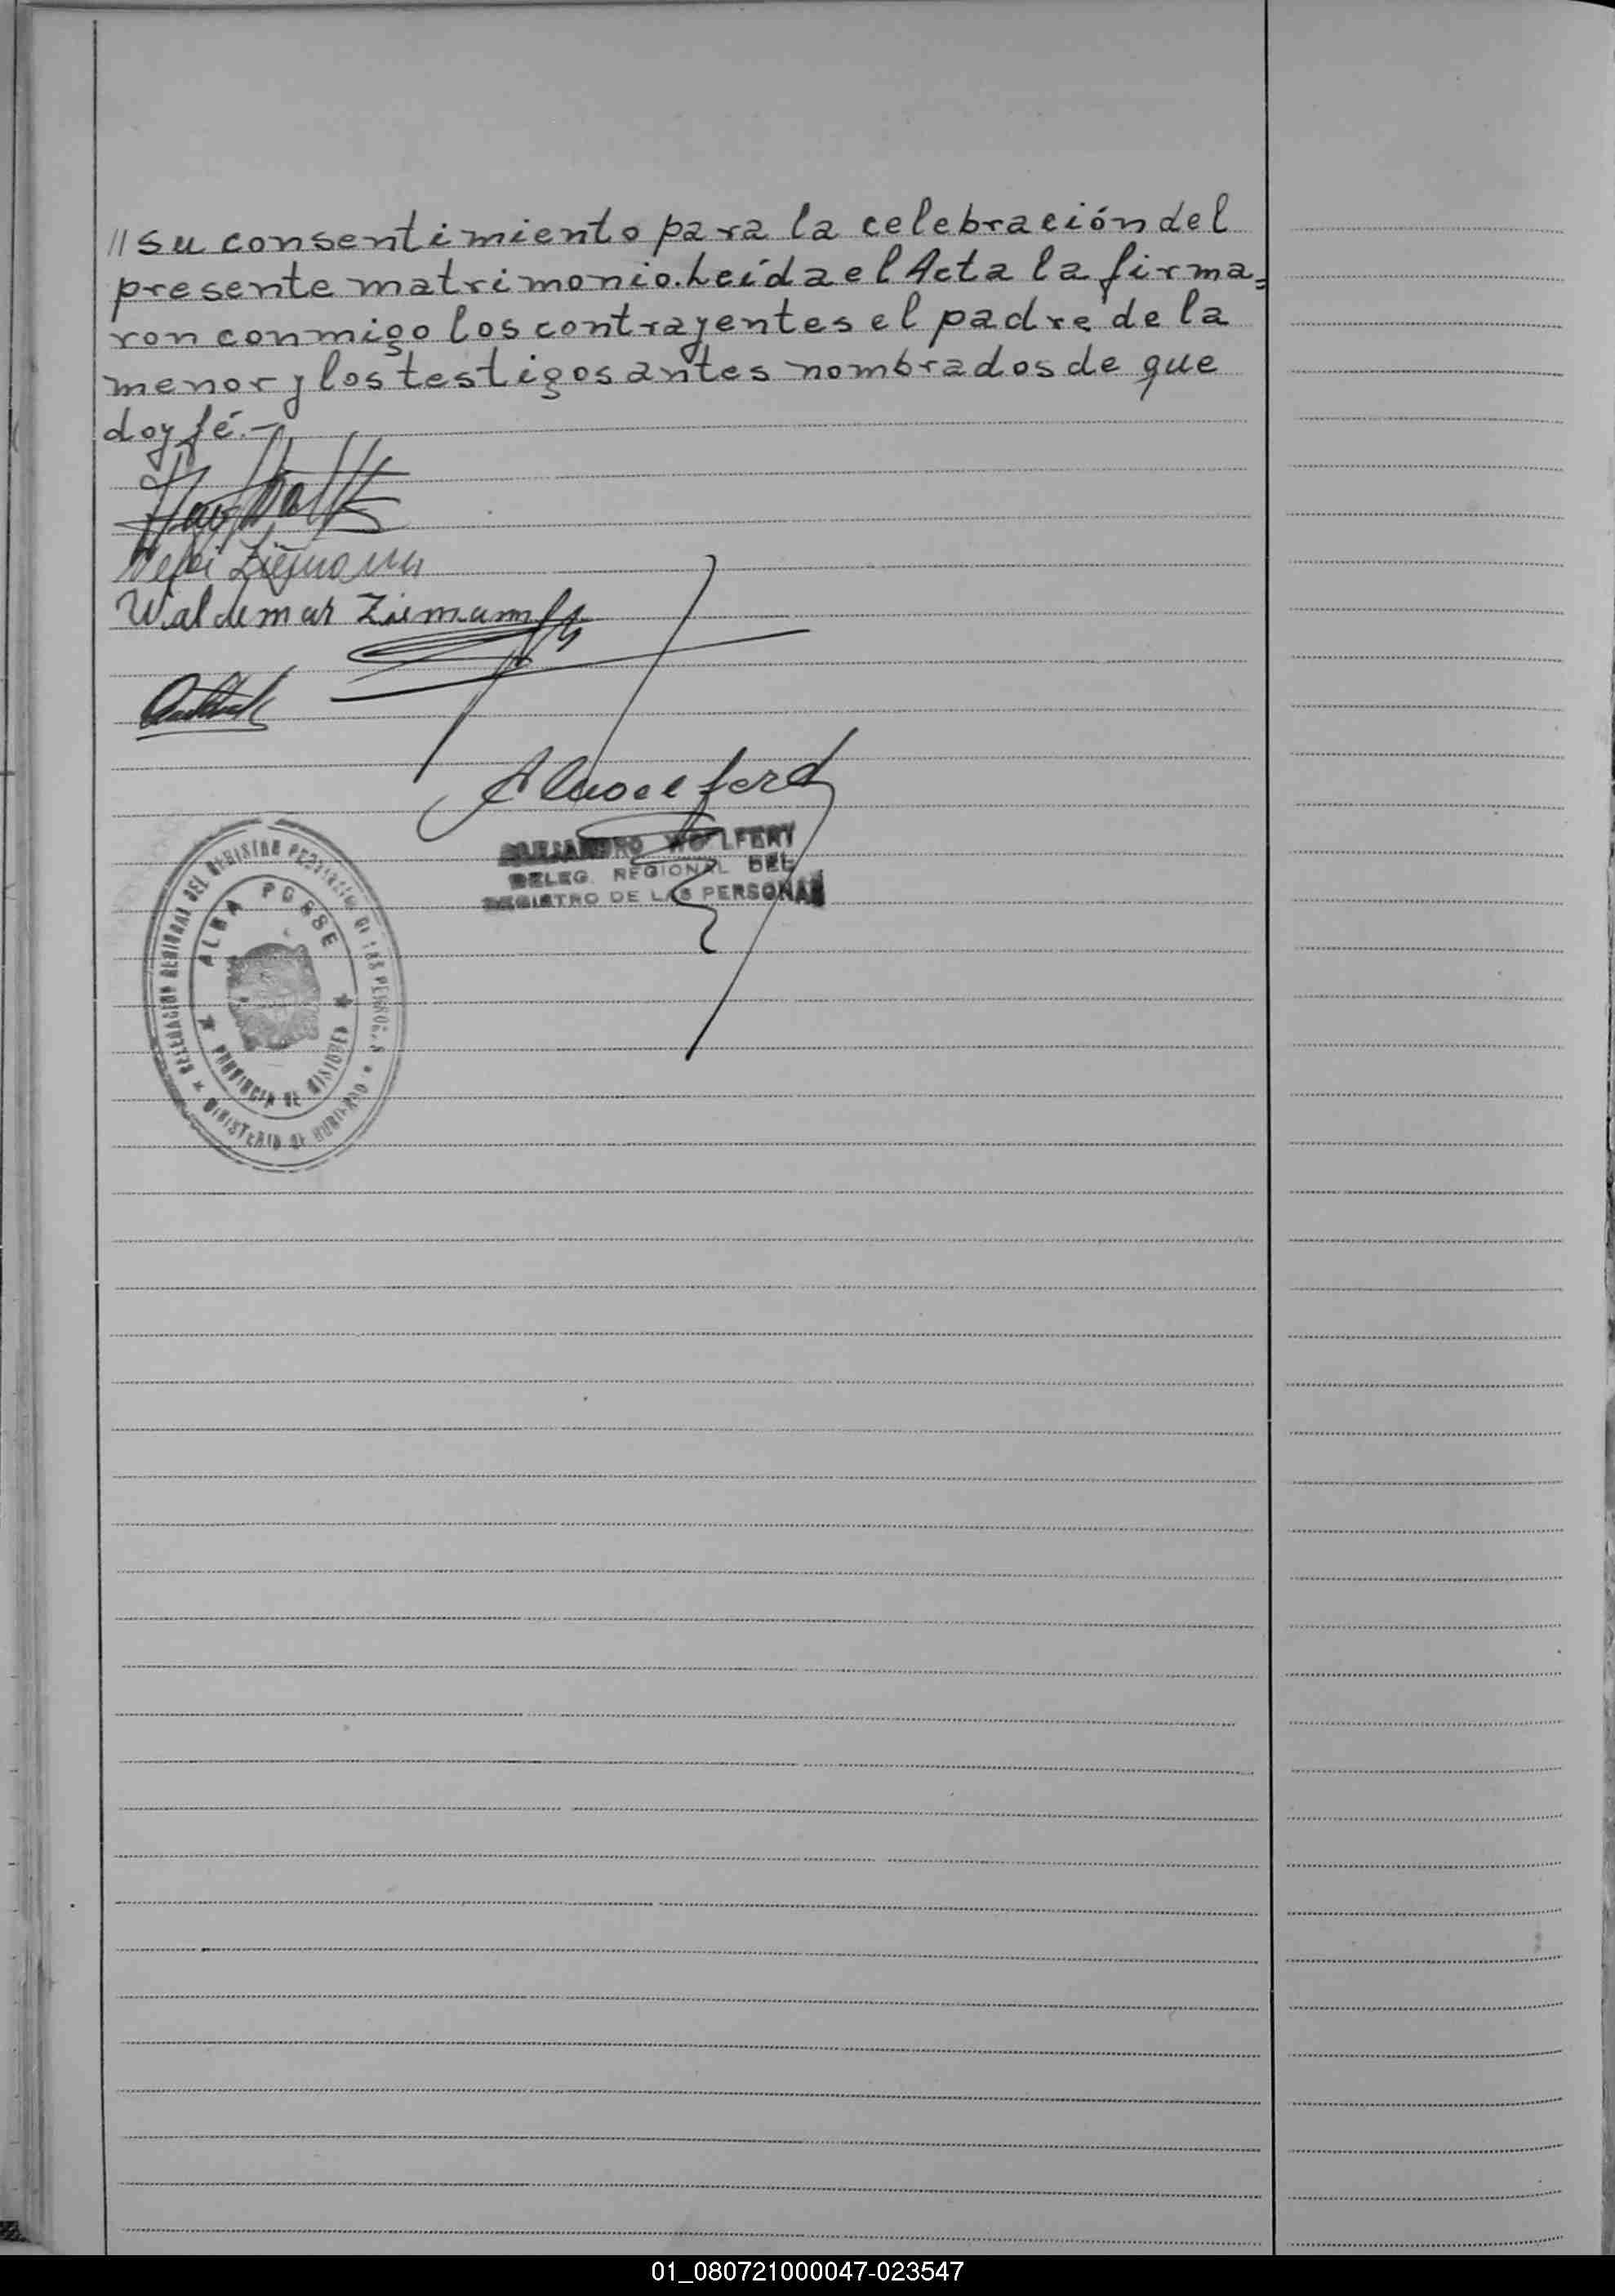 // su consentimiento para la celebración del
presente matrimonio. Leída el Acta la firma=
ron conmigo los contrayentes el padre de la
menor y los testigos antes nombrados de que
doy fé.-
Ziemann
Waldemar Ziemann
ALEJANDRO WOLFERT
DELEG. REGIONAL DEL
REGISTRO DE LAS PERSONAS
DELEGACION REGIONAL DEL REGISTRO PROVINCIAL DE LAS PERSONAS
* MINISTERIO DE GOBIERNO *
ALBA POSSE
* PROVINCIA DE MISIONES *
01_080721000047-023547